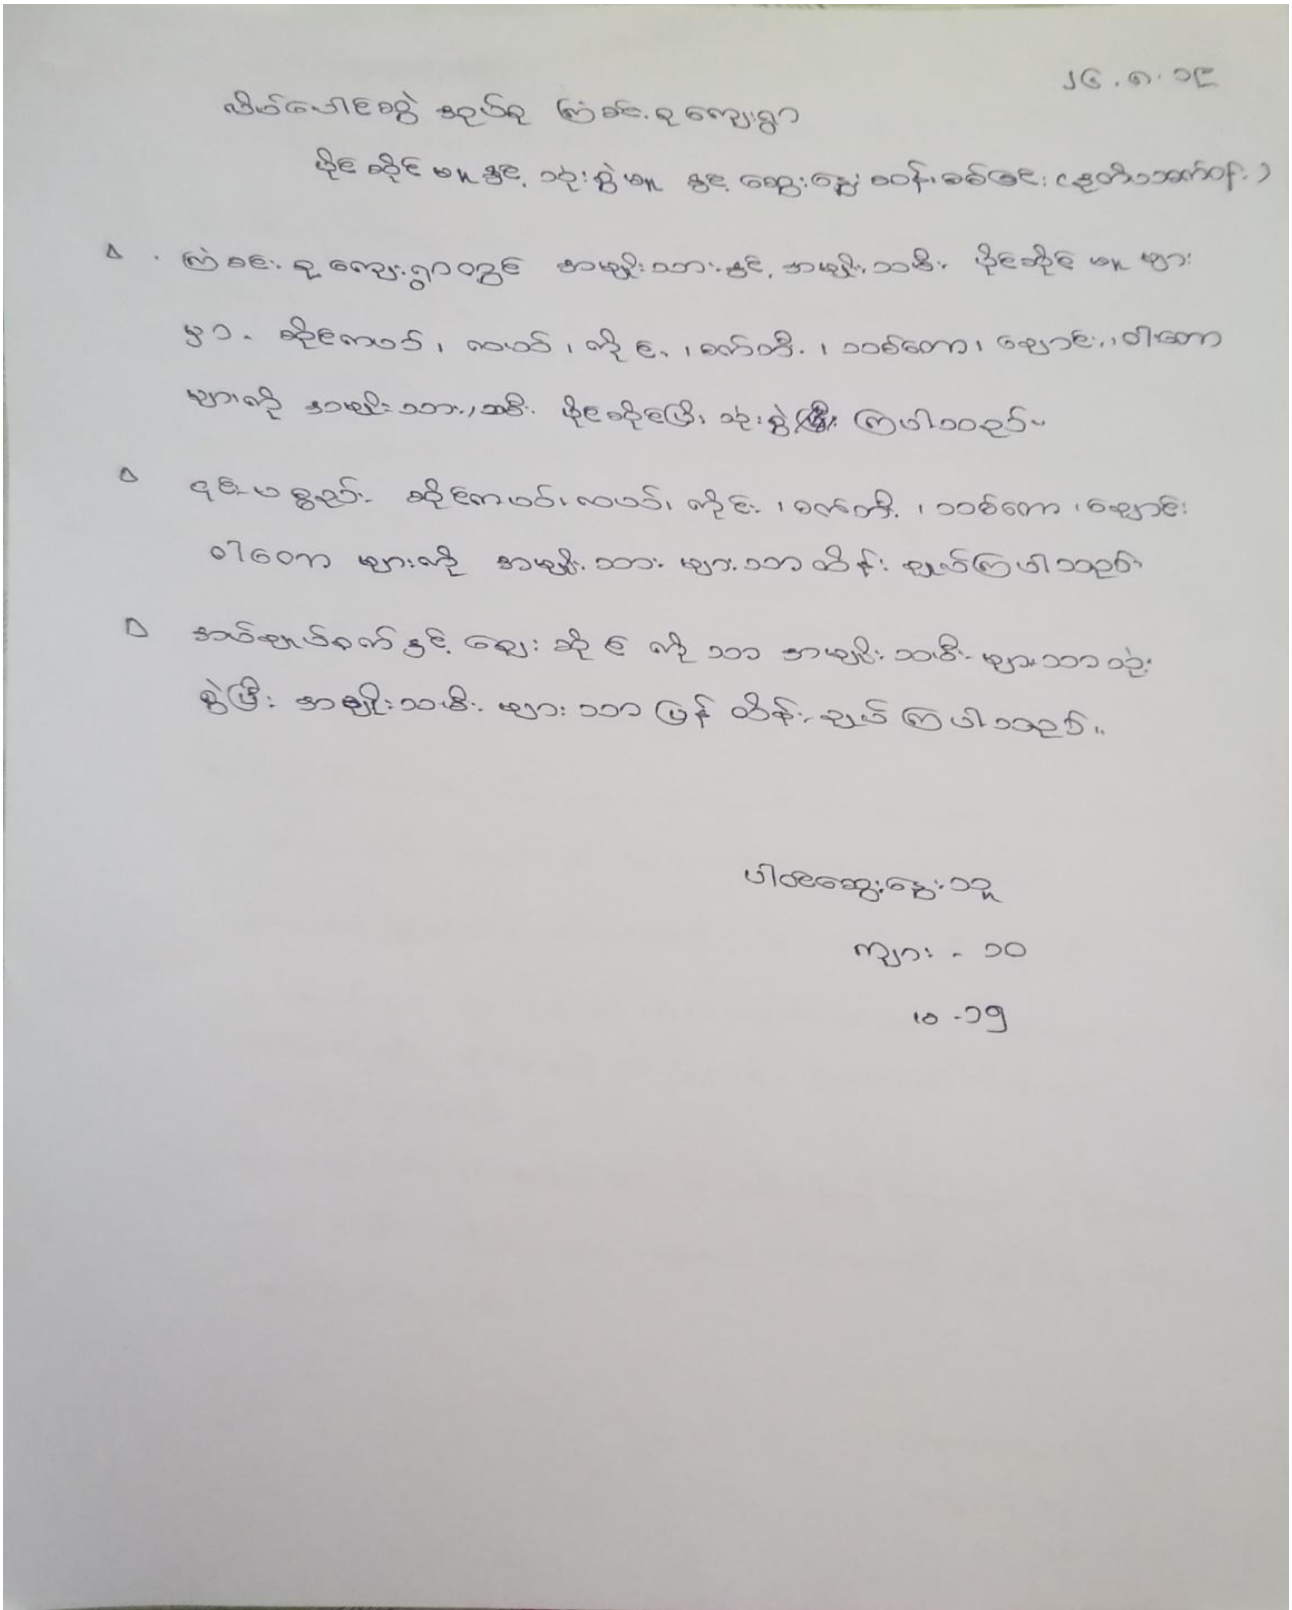 ၂၆.၈.၁၉
လိပ်ပေါင်စွဲ အုပ်စု ကြံခင်းစု ကျေးရွာ
ပိုင်ဆိုင်မှုနှင့် သုံးစွဲမှု နှင့် ဆွေးနွေး စစ်ခြင်း
ကြံခင်းစု ကျေးရွာတွင် အမျိုးသားနှင့် အမျိုးသမီး ပိုင်ဆိုင်မှုများ
မှာ - ဆိုင်ကယ်၊ လယ်၊ ကိုင်း၊ စက်ဘီး၊ သစ်တော၊ ချောင်း၊ ဝါးတော
များကို အမျိုးသား၊ သမီး ပိုင်ဆိုင်ပြီး သုံးစွဲ ကြပါသည်။
၎င်းပစ္စည်း ဆိုင်ကယ်၊ လယ်၊ ကိုင်း၊ စက်ဘီး၊ သစ်တော၊ ချောင်း
ဝါးတော များကို အမျိုးသား များသာ ထိန်းချုပ်ကြပါသည်။
အပ်ချုပ်စက်နှင့် ဈေးဆိုင် ကိုသာ အမျိုးသမီးများသာသုံး
စွဲပြီး အမျိုးသမီးများသာ ပြန် ထိန်းချုပ်ကြပါသည်။
ပါဝင်ဆွေးနွေးသူ
ကျား - ၁၀
မ - ၁၅